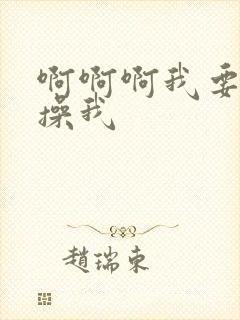 啊啊啊我要
操我
趙瑞東